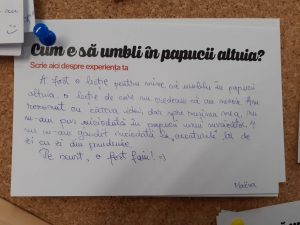 Cum e să umbli în papucii altuia?
Scrie aici despre experiența ta
A fost o lecție pentru mine să umblu în papucii
altuia, o lecție de care nu credeam că am nevoie. Am
rezonat cu câteva idei, dar spre rușinea mea, nu
m-am pus niciodată în papucii unui
nu m-am gândit niciodată la "aventurile" lui de
zi cu zi din
Pe scurt, o fost fain! :)